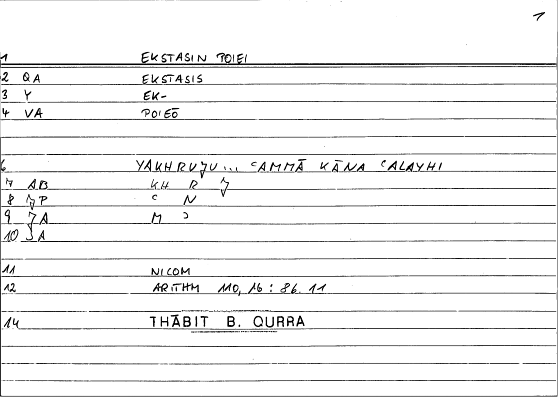 1
1 EKSTASIN POIEI
2 QA EKSTASIS
3 Y EK-
4 VA POIEŌ
6 YAKHRUJU... ʿAMMĀ KĀNA ʿALAYHI
7 AB KH R J
8 JP ʿ N
9 JA M ʾ
10 JA
11 NICOM
12 ARITHM 110, 16 : 86.11
14 THĀBIT B. QURRA